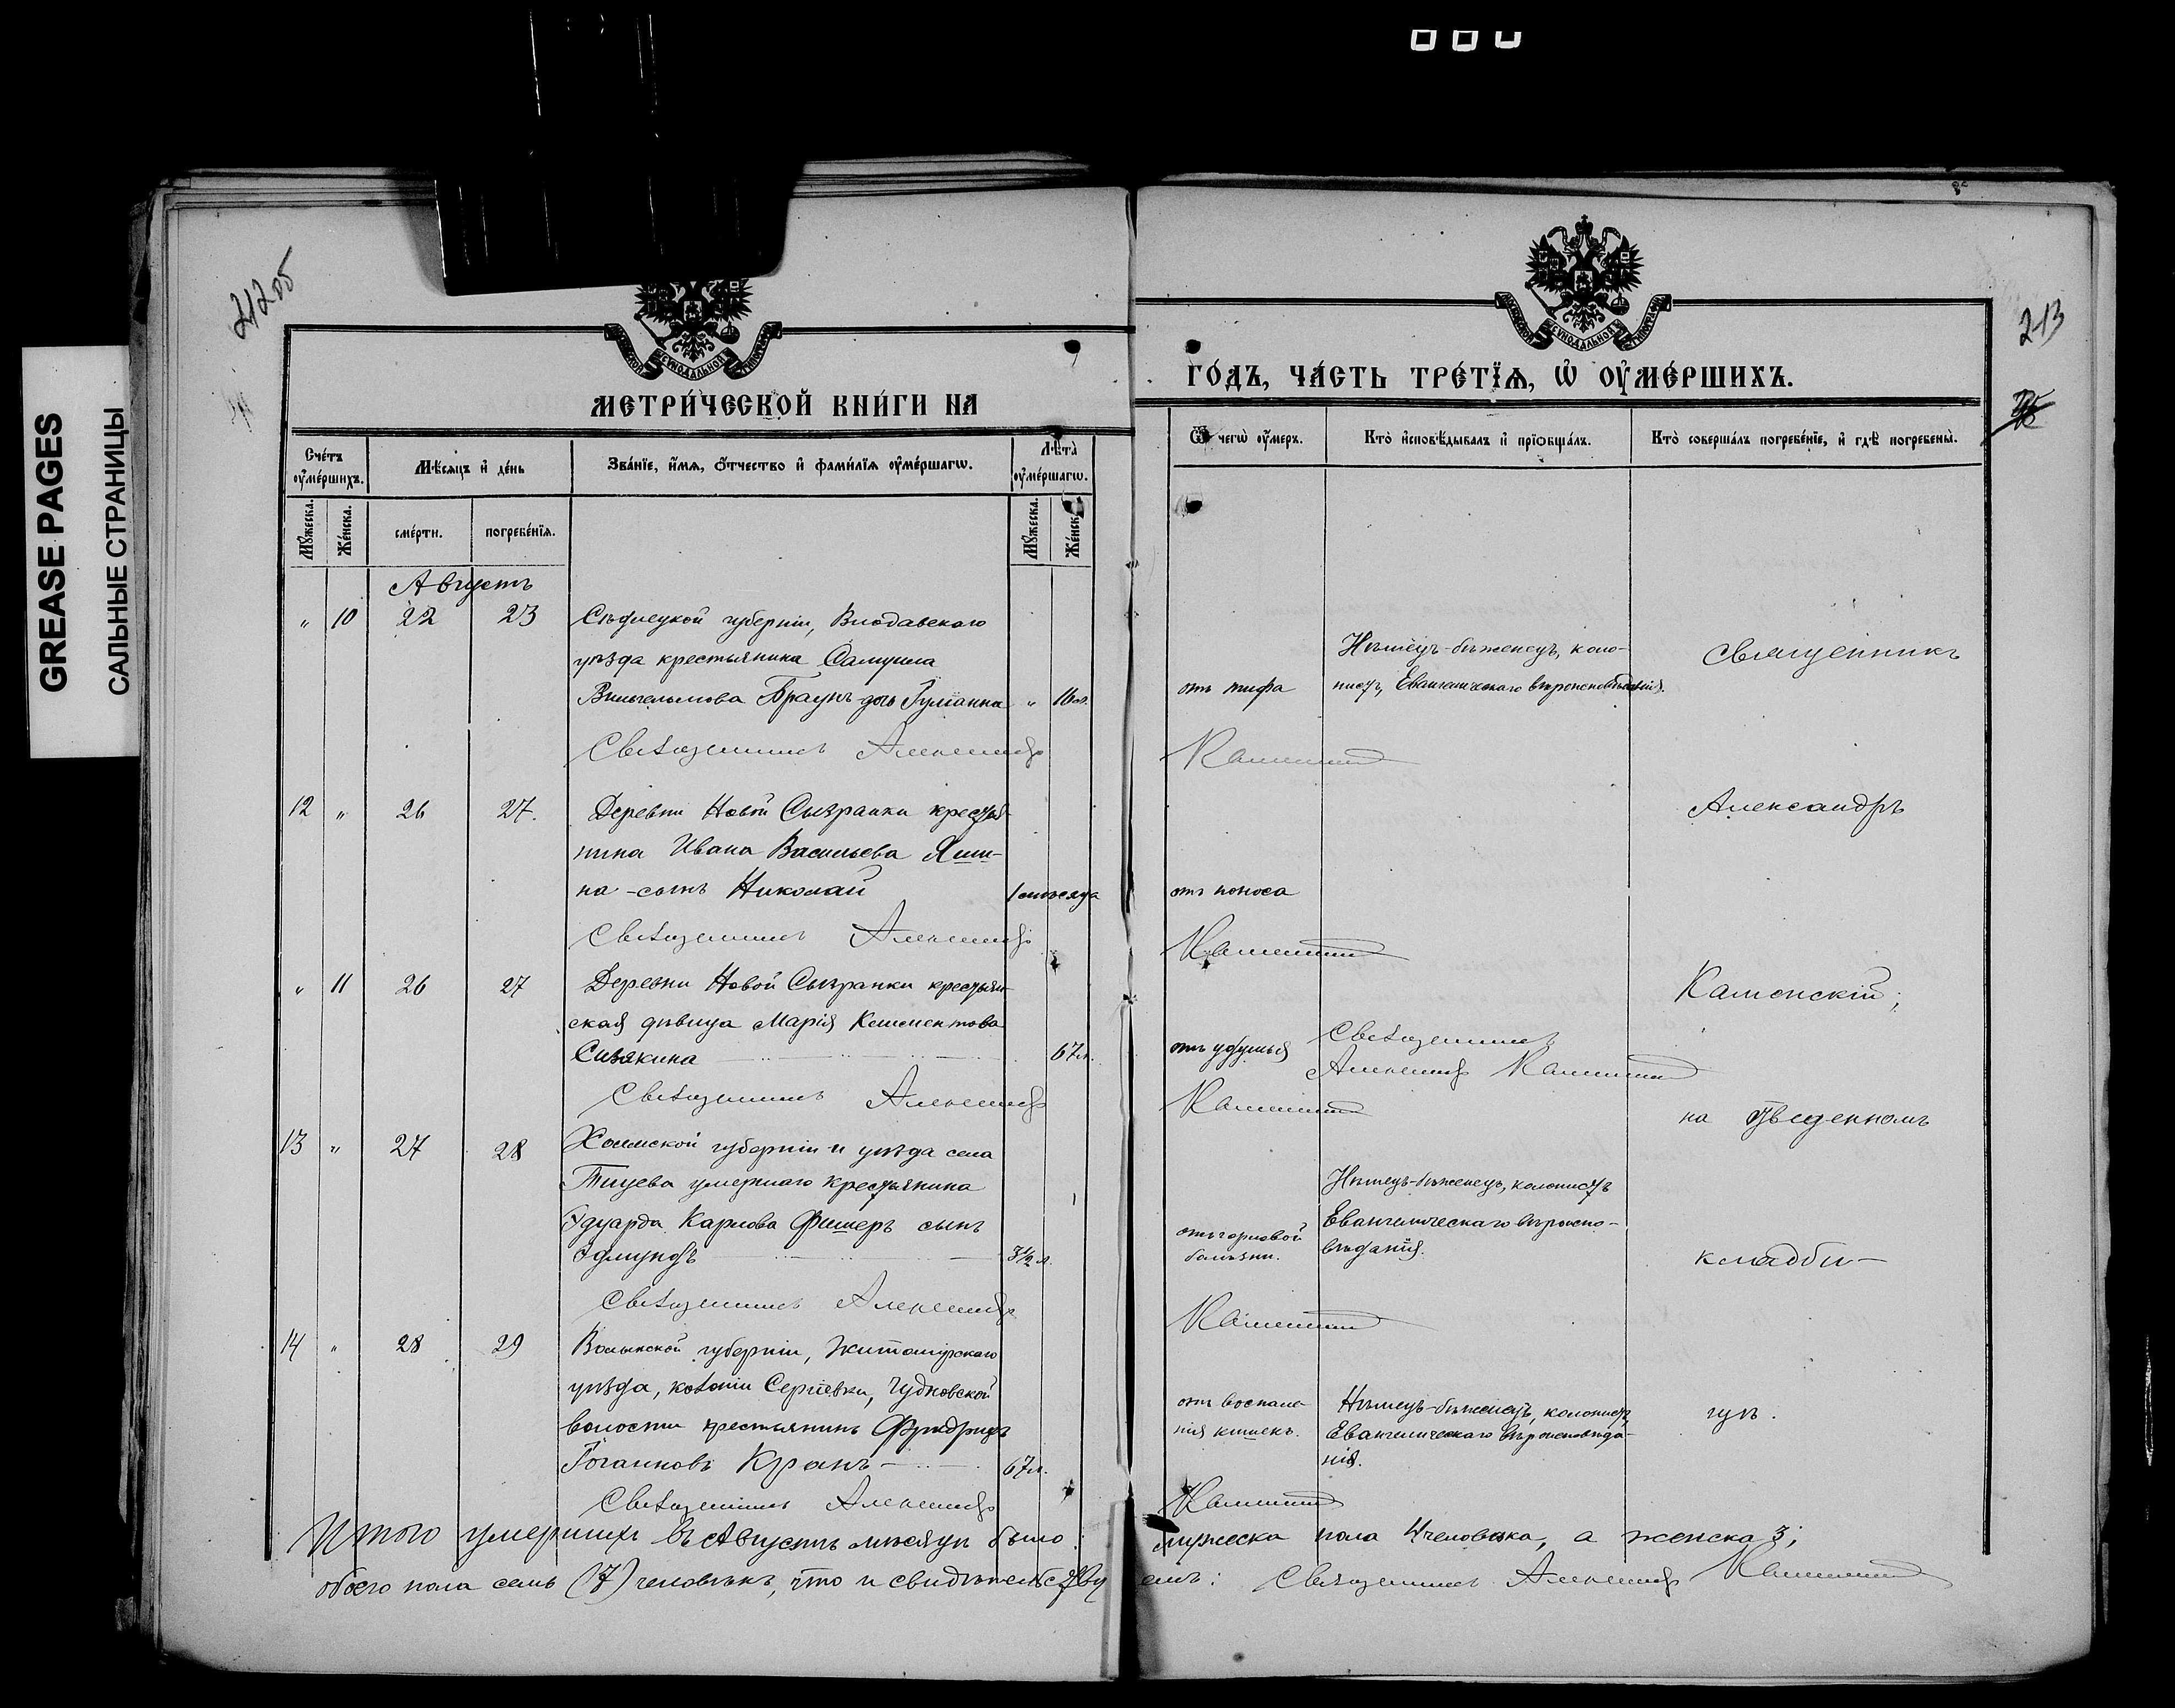 GREASE PAGES
САЛЬНЫЕ СТРАНИЦЫ
212об
213
МЕТРИ́ЧЕСКОЙ КНИ́ГИ НА
ГО́ДЪ, ЧА́СТЬ ТРЕ́ТЇѦ, Ѽ ОУ҆МЕ́РШИХЪ.
Сче́тъ оу҆ме́ршихъ.
Мѣ́сяцъ и҆ де́нь
Зва́нїе, и҆́мя, ѻ҆́тчество и҆ фами́лїя оу҆ме́ршагѡ.
Лѣ́та оу҆ме́ршагѡ.
Ѿ чегѡ̀ оу҆́меръ.
Кто̀ и҆сповѣ́дывалъ и҆ прїѡбща́лъ.
Кто̀ соверша́лъ погребе́нїе, и҆ гдѣ̀ погребены̀.
Мꙋ́жеска.
Же́нска.
сме́рти.
погребе́нїя.
Мꙋ́жеска.
Же́нск
Августъ
" 10 22 23 Сѣдлецкой губерніи, Влодавскаго
уѣзда крестьянина Самуила
Вильгельмова Браунъ дочь Гуліанна " 16 л.
отъ тифа
Нѣмецъ-бѣженецъ, коло-
нистъ, Евангелическаго вѣроисповѣданія.
Священникъ
Священникъ Александръ Каменскій
12 " 26 27. Деревни Новой Сызранки крестья-
нина Ивана Васильева Яши-
на - сынъ Николай 1 мѣсяца
отъ поноса
Александръ
Священникъ Александръ Каменскій
" 11 26 27 Деревни Новой Сызранки крестьян-
ская дѣвица Марія Климентова
Сизякина 67 л.
отъ удушья
Священникъ
Александръ Каменскій
Каменскій;
Священникъ Александръ Каменскій
на
13 " 27 28 Холмской губерніи и уѣзда села
умершаго крестьянина
Эдуарда Карлова Фишеръ сынъ
Эдмундъ 3½ л.
отъ горловой
болѣзни.
Нѣмецъ-бѣженецъ, колонистъ
Евангелическаго вѣроиспо-
вѣданія.
кладби-
Священникъ Александръ Каменскій
14 " 28 29 Волынской губерніи, Житомірскаго
уѣзда, колоніи Сергіевки, Чудновской
волости крестьянинъ Фридрихъ
Іоганновъ Кранъ 67 л.
отъ воспале-
нія кишекъ.
Нѣмецъ-бѣженецъ, колонистъ,
Евангелическаго вѣроисповѣда-
нія.
щѣ.
Священникъ Александръ Каменскій
Итого умершихъ въ Августѣ мѣсяцѣ было: мужеска пола 4 человѣка, а женска 3;
обоего пола семь (7) человѣкъ, что и свидѣтельствуемъ: Священникъ Александръ Каменскій